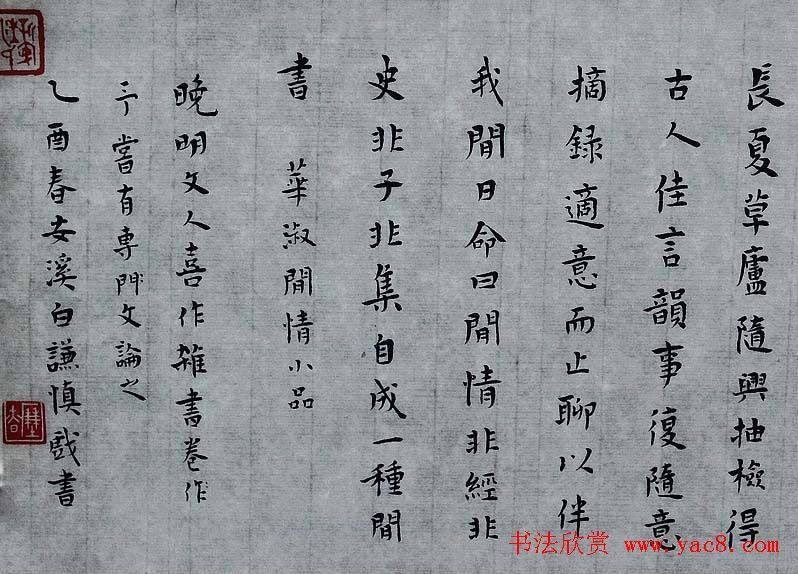 長夏草廬隨興抽檢得
古人佳言韻事復隨意
摘錄適意而止聊以伴
我閒日命曰閒情非經非
史非子非集自成一種閒
書 華淑閒情小品
晚明文人喜作雜書卷作
予嘗有專門文論之
乙酉春安溪白謙慎戲書
书法欣赏 www.yac8.com